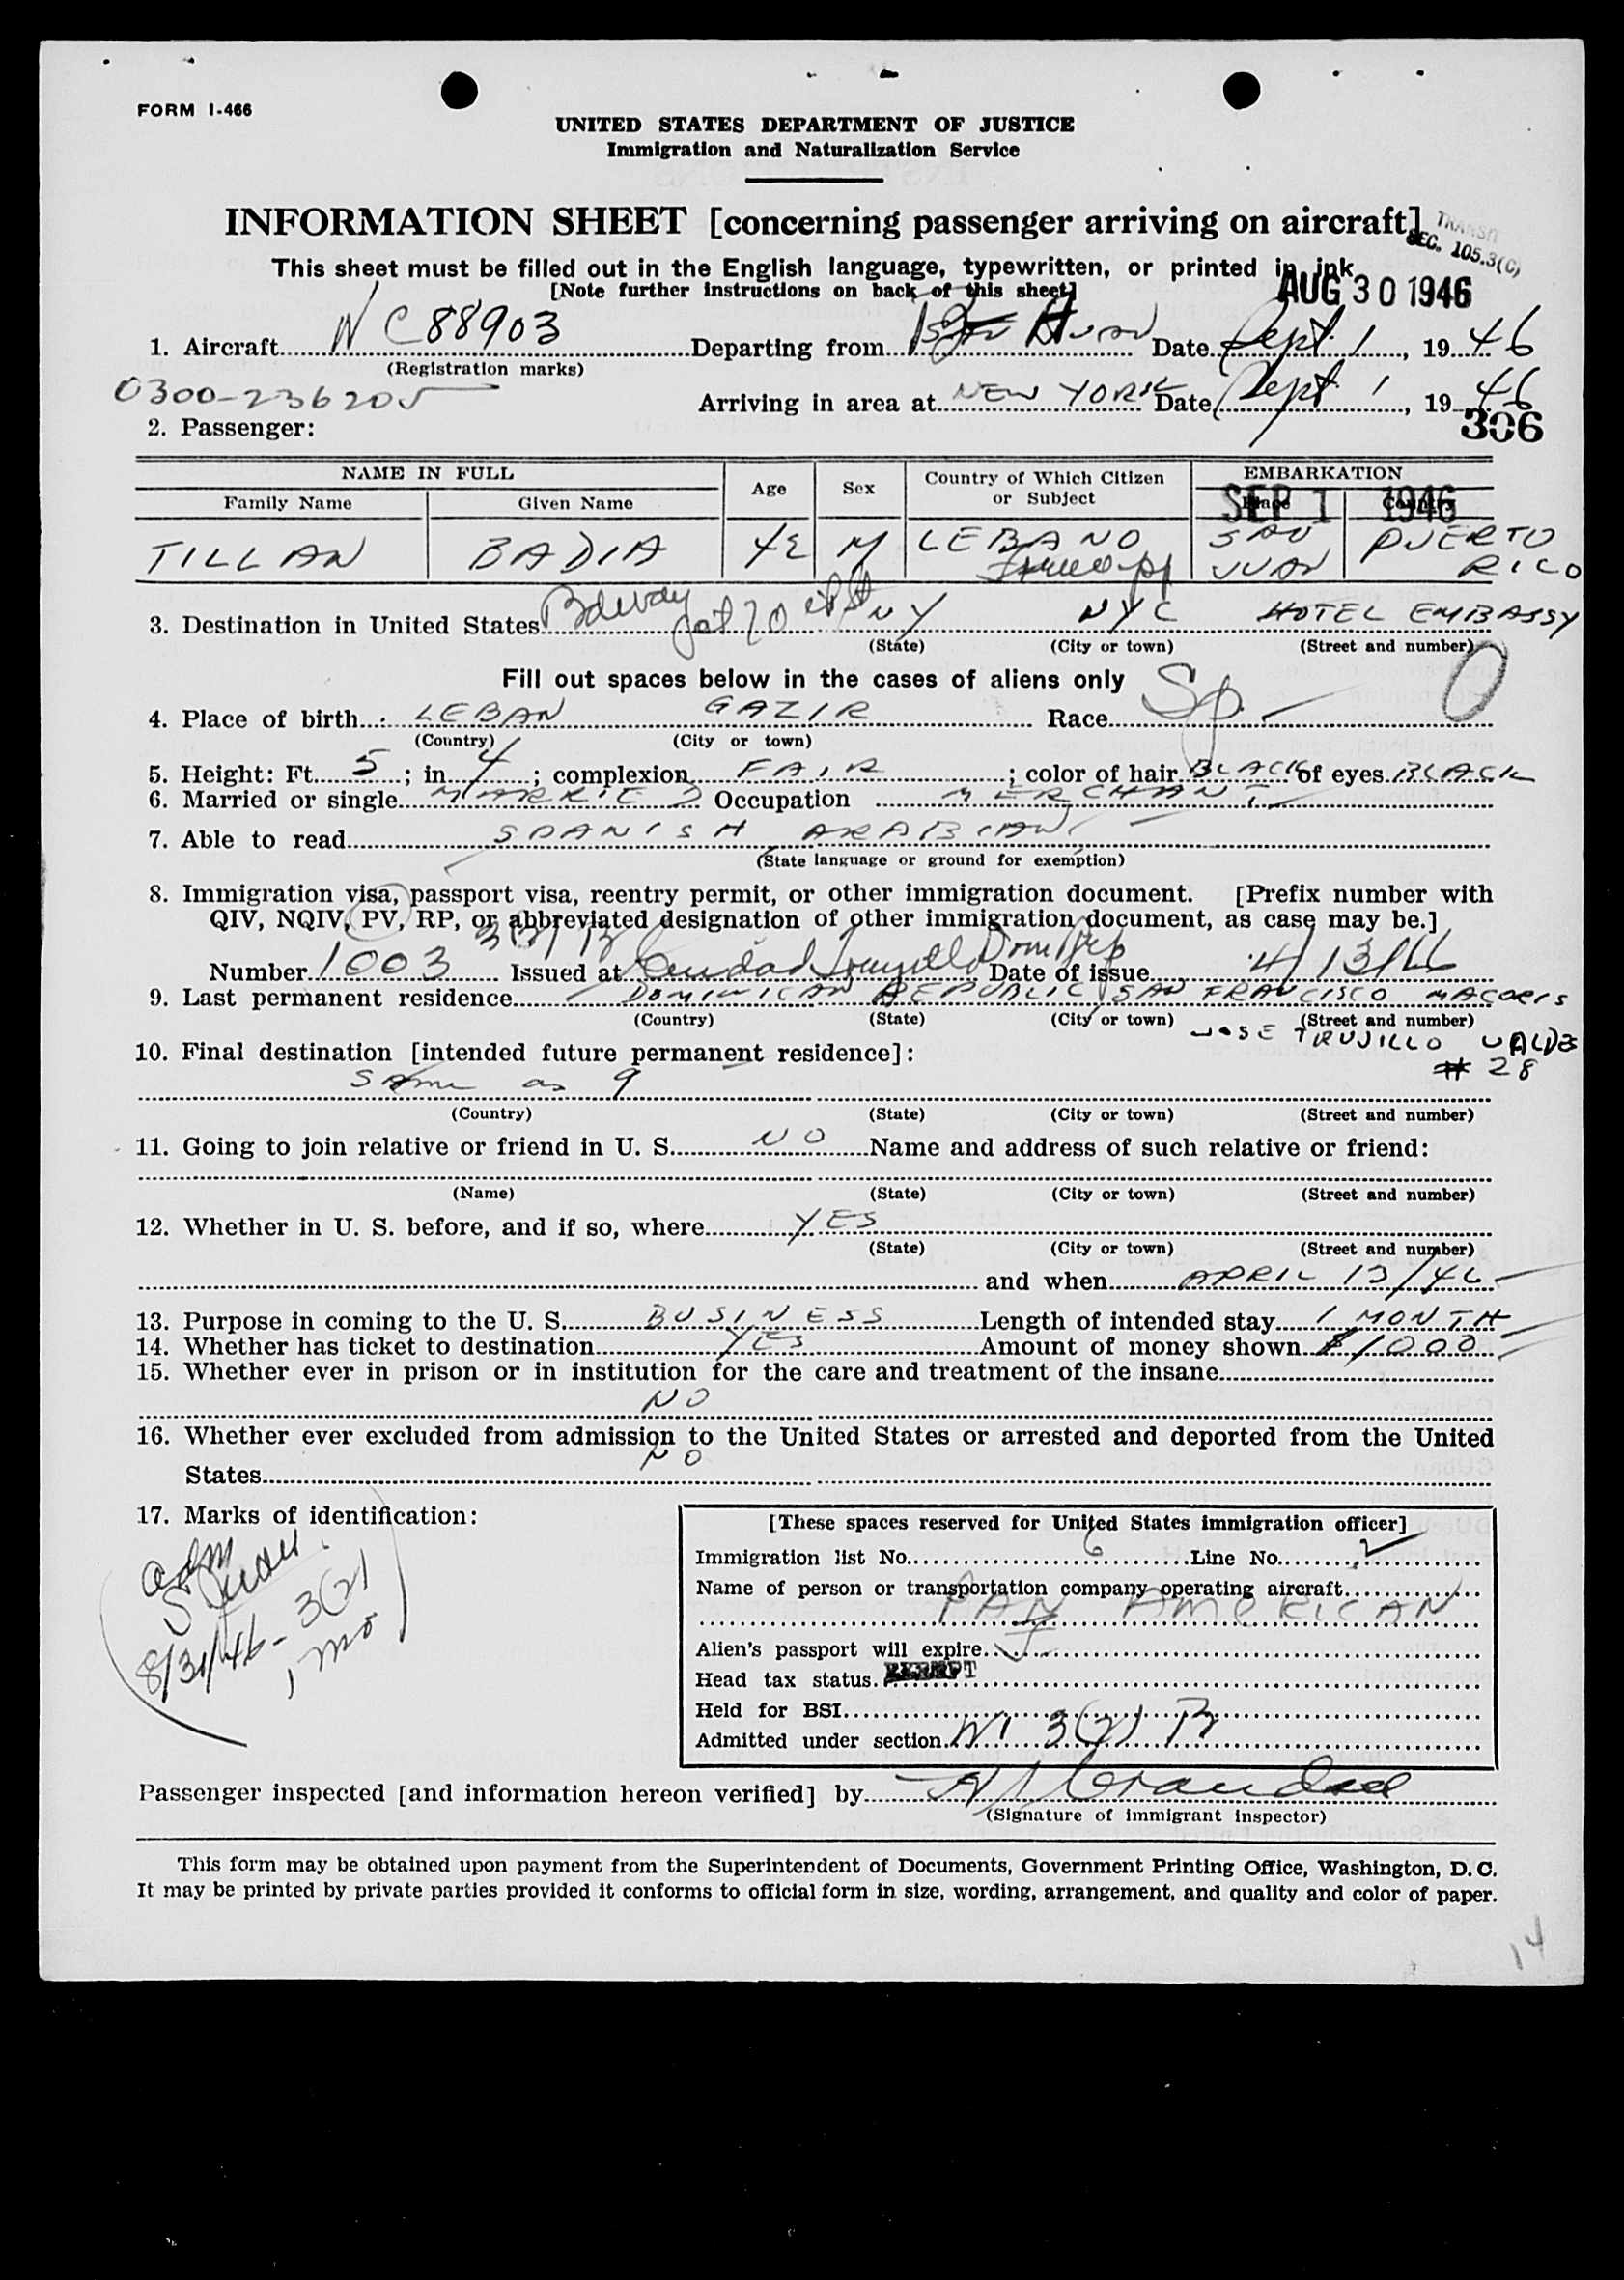 FORM I-466
UNITED STATES DEPARTMENT OF JUSTICE
Immigration and Naturalization Service
INFORMATION SHEET [concerning passenger arriving on aircraft]
TRANSIT
SEC. 105.3(C)
This sheet must be filled out in the English language, typewritten, or printed in ink
[Note further instructions on back of this sheet]
AUG 30 1946
1. Aircraft NC88903 Departing from San Juan Date Sept. 1, 1946
(Registration marks)
0300-236205
Arriving in area at NEW YORK Date Sept 1, 1946
306
2. Passenger:
NAME IN FULL Age Sex Country of Which Citizen or Subject EMBARKATION
Family Name Given Name Place Country
SEP 1 1946
TILLAN BADIA 42 M LEBANO SAN JUAN PUERTO RICO
3. Destination in United States Bdway at 70 St NY NYC HOTEL EMBASSY
(State) (City or town) (Street and number)
Fill out spaces below in the cases of aliens only
4. Place of birth LEBAN GAZIR Race Sp.
(Country) (City or town)
5. Height: Ft. 5; in. 4; complexion FAIR; color of hair BLACK of eyes BLACK
6. Married or single MARRIED Occupation MERCHANT
7. Able to read SPANISH ARABIAN
(State language or ground for exemption)
8. Immigration visa, passport visa, reentry permit, or other immigration document. [Prefix number with
QIV, NQIV, PV, RP, or abbreviated designation of other immigration document, as case may be.]
3(2) B
Number 1003 Issued at Ciudad Trujillo Dom Rep Date of issue 4/13/46
9. Last permanent residence DOMINICAN REPUBLIC SAN FRANCISCO MACORIS
(Country) (State) (City or town) (Street and number)
JOSE TRUJILLO VALDES
# 28
10. Final destination [intended future permanent residence]:
Same as 9
(Country) (State) (City or town) (Street and number)
11. Going to join relative or friend in U. S. NO Name and address of such relative or friend:
(Name) (State) (City or town) (Street and number)
12. Whether in U. S. before, and if so, where YES
(State) (City or town) (Street and number)
and when APRIL 13/46
13. Purpose in coming to the U. S. BUSINESS Length of intended stay 1 MONTH
14. Whether has ticket to destination YES Amount of money shown $1000
15. Whether ever in prison or in institution for the care and treatment of the insane
NO
16. Whether ever excluded from admission to the United States or arrested and deported from the United
States NO
17. Marks of identification:
adm
S Juan
8/31/46 - 3(2)
1 mo
[These spaces reserved for United States immigration officer]
Immigration list No. 6 Line No. 2
Name of person or transportation company operating aircraft
PAN AMERICAN
Alien's passport will expire
Head tax status EXEMPT
Held for BSI
Admitted under section 3(2) B
Passenger inspected [and information hereon verified] by
(Signature of immigrant inspector)
This form may be obtained upon payment from the Superintendent of Documents, Government Printing Office, Washington, D. C.
It may be printed by private parties provided it conforms to official form in size, wording, arrangement, and quality and color of paper.
14